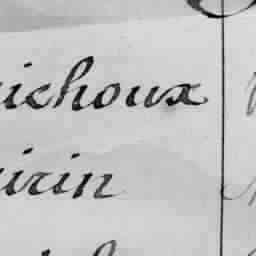 ichoux
irin